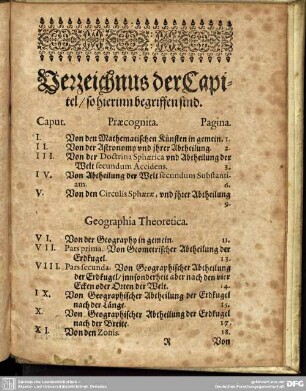 Verzeichnus der Capi-
tel / so hierinn begriffen sind.
Caput. Præcognita. Pagina.
I. Von den Mathematischen Künsten in gemein. 1.
II. Von der Astronomy vnd jhrer Abtheilung. 2.
III. Von der Doctrina Sphærica vnd Abtheilung der
Welt secundum Accidens. 3.
IV. Von Abtheilung der Welt secundum Substanti-
am. 6.
V. Von den Circulis Sphæræ, vnd jhrer Abtheilung
9.
Geographia Theoretica.
VI. Von der Geography in gemein. 11.
VII. Pars prima. Von Geometrischer Abtheilung der
Erdkugel. 13.
VIII. Pars secunda. Von Geographischer Abtheilung
der Erdkugel / innsonderheit aber nach den vier
Ecken oder Orten der Welt. 14.
IX. Von Geographischer Abtheilung der Erdkugel
nach der Länge. 15.
X. Von Geographischer Abtheilung der Erdkugel
nach der Breite. 17.
XI. Von den Zonis. 18.
R Von